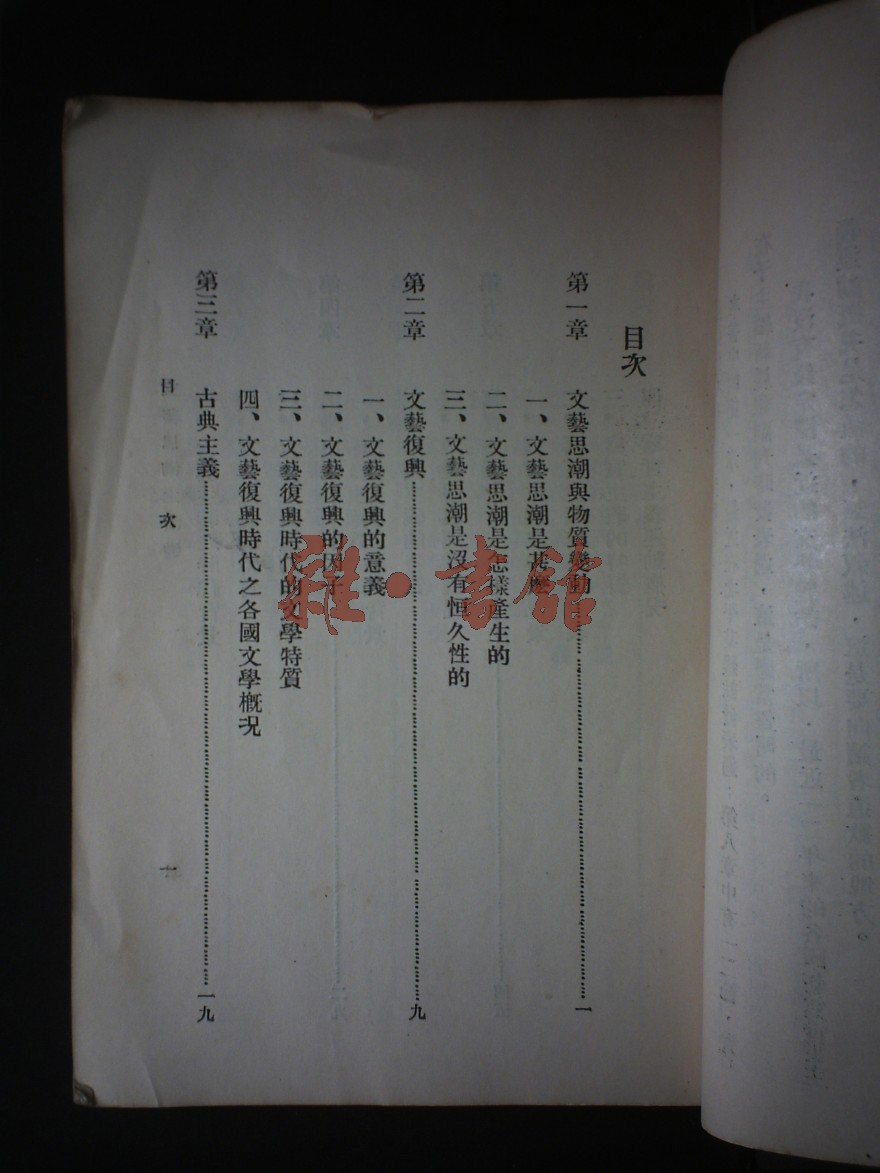 目次
第一章 文藝思潮與物質變動……一
一、文藝思潮是甚麽
二、文藝思潮是怎樣產生的
三、文藝思潮是沒有恒久性的
第二章 文藝復興……九
一、文藝復興的意義
二、文藝復興的因子
三、文藝復興時代的文學特質
四、文藝復興時代之各國文學概况
第三章 古典主義……一九
目次 一
雜·書館